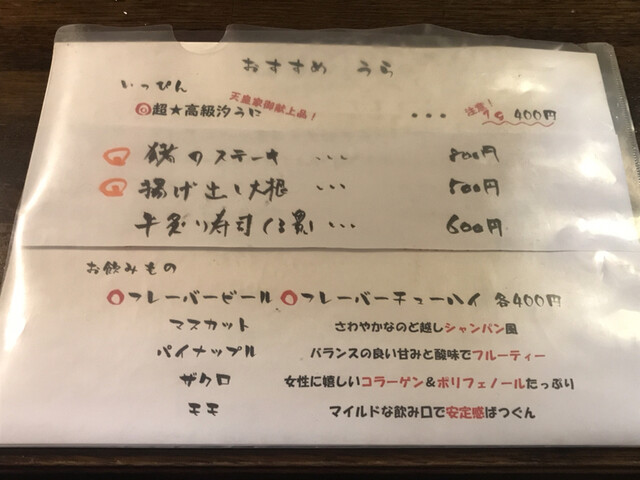 おすすめ うら
いっぴん
天皇家御献上品！
◎超★高級汐うに ・・・ 注意！ 1g 400円
猪のステーキ ・・・ 800円
揚げ出し大根 ・・・ 500円
牛炙り寿司(3貫) ・・・ 600円
お飲みもの
○フレーバービール ○フレーバーチューハイ 各400円
マスカット さわやかなのど越しシャンパン風
パイナップル バランスの良い甘みと酸味でフルーティー
ザクロ 女性に嬉しいコラーゲン&ポリフェノールたっぷり
モモ マイルドな飲み口で安定感ばつぐん